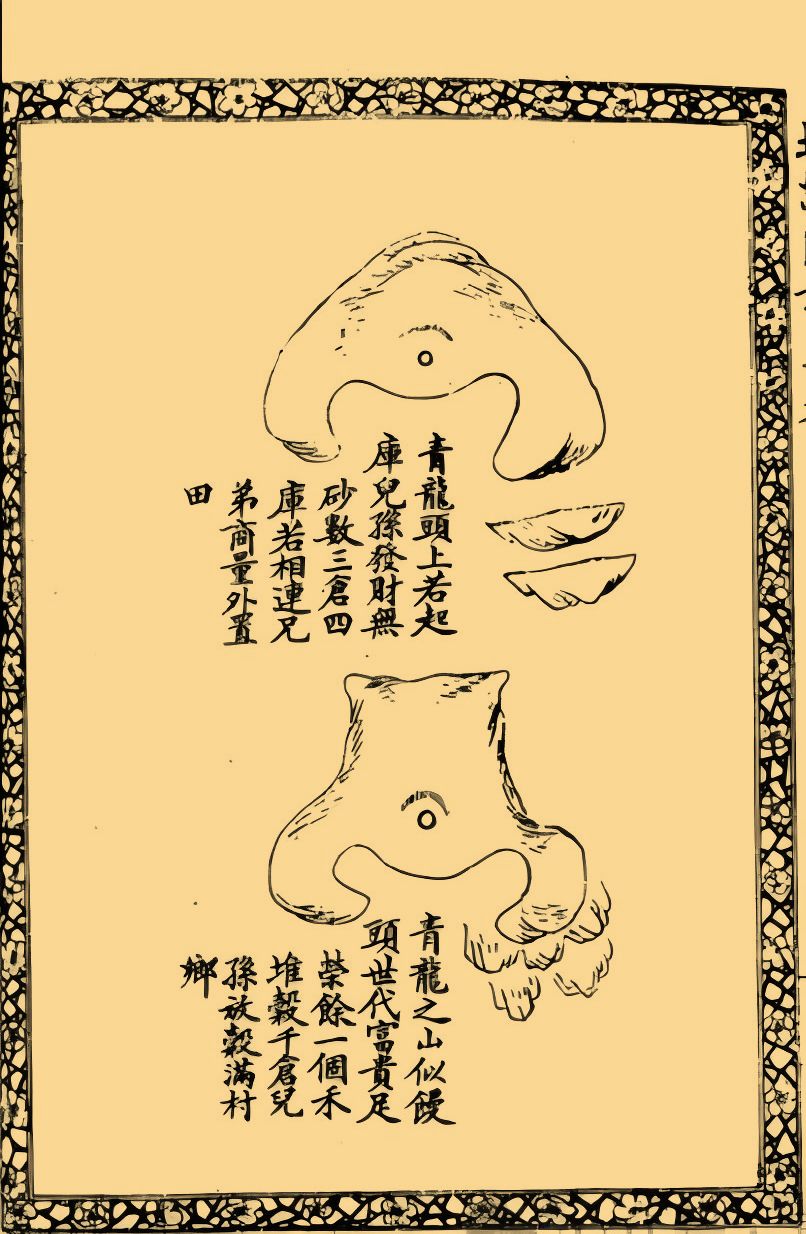 青龍頭上若起
庫兒孫發財無
砂數三倉四
庫若相連兄
弟商量外置
田
青龍之山似饅
頭世代富貴足
榮餘一個禾
堆穀千倉兒
孫放穀滿村
鄉